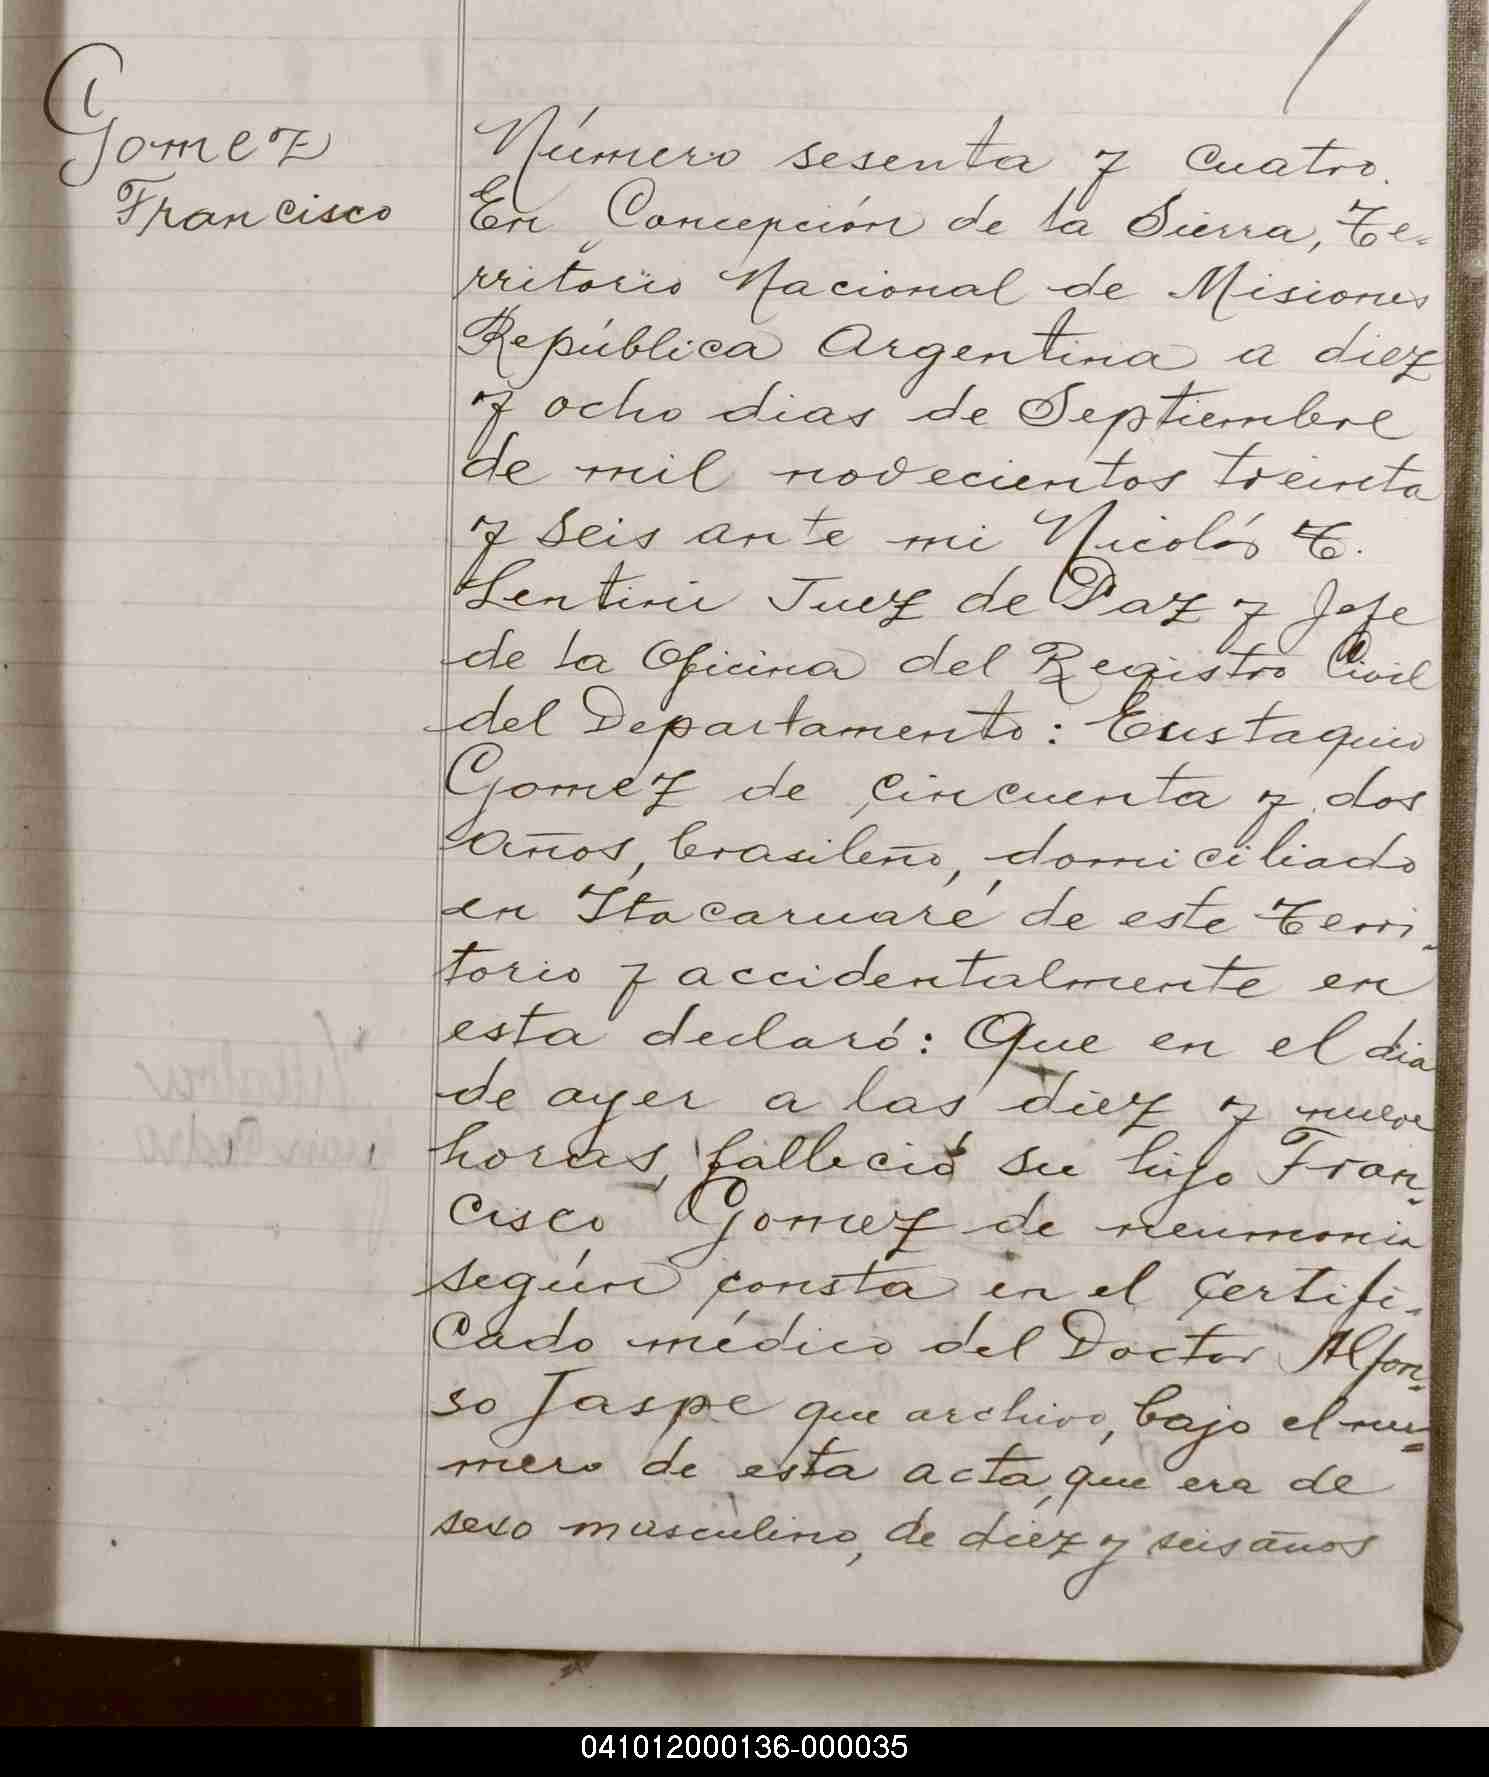 Gomez
Francisco
Número sesenta y cuatro.
En Concepción de la Sierra, Te-
rritorio Nacional de Misiones
República Argentina a diez
y ocho dias de Septiembre
de mil novecientos treinta
y seis ante mi Nicolás T.
Lentini Juez de Paz y Jefe
de la Oficina del Registro Civil
del Departamento: Eustaquio
Gomez de cincuenta y dos
años, brasileño, domiciliado
en Itacaruaré de este Terri-
torio y accidentalmente en
esta declaró: Que en el dia
de ayer a las diez y nueve
horas, falleció su hijo Fran-
cisco Gomez de neumonia
según consta en el certifi-
cado médico del Doctor Alfon-
so Jaspe que archivo, bajo el nu-
mero de esta acta, que era de
sexo masculino, de diez y seis años
041012000136-000035